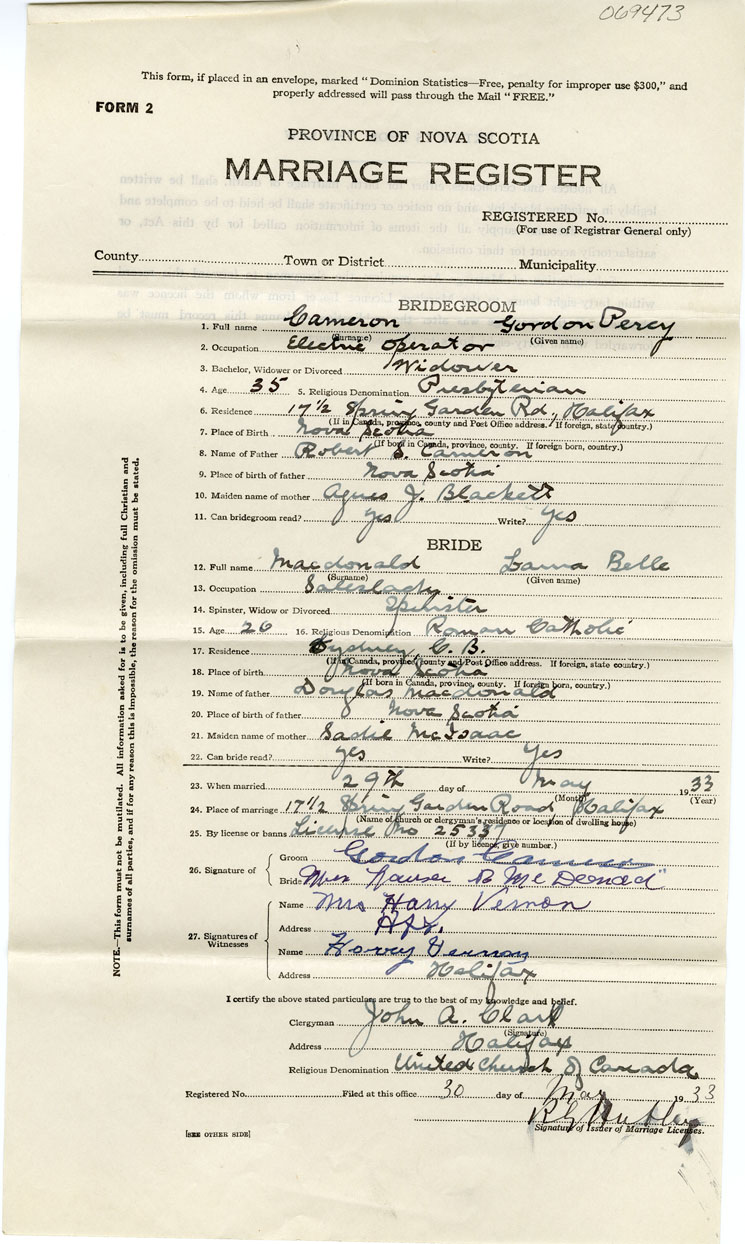 069473
This form, if placed in an envelope, marked "Dominion Statistics—Free, penalty for improper use $300," and
properly addressed will pass through the Mail "FREE."
FORM 2
PROVINCE OF NOVA SCOTIA
MARRIAGE REGISTER
REGISTERED No.
(For use of Registrar General only)
County Town or District Municipality
BRIDEGROOM
1. Full name Cameron Gordon Percy
(Surname) (Given name)
2. Occupation Electric Operator
3. Bachelor, Widower or Divorced Widower
4. Age 35 5. Religious Denomination Presbyterian
6. Residence 17½ Spring Garden Rd., Halifax
(If in Canada, province, county and Post Office address. If foreign, state country.)
7. Place of Birth Nova Scotia
(If born in Canada, province, county. If foreign born, country.)
8. Name of Father Robert S. Cameron
9. Place of birth of father Nova Scotia
10. Maiden name of mother Agnes J. Blackett
11. Can bridegroom read? yes Write? yes
BRIDE
12. Full name Macdonald Belle
(Surname) (Given name)
13. Occupation Saleslady
14. Spinster, Widow or Divorced Spinster
15. Age 26 16. Religious Denomination Roman Catholic
17. Residence Sydney, C. B.
(If in Canada, province, county and Post Office address. If foreign, state country.)
18. Place of birth Nova Scotia
(If born in Canada, province, county. If foreign born, country.)
19. Name of father Douglas Macdonald
20. Place of birth of father Nova Scotia
21. Maiden name of mother Sadie McIsaac
22. Can bride read? yes Write? Yes
23. When married 29th day of May 1933
(Month) (Year)
24. Place of marriage 17½ Spring Garden Road, Halifax
(Name of church or clergyman's residence or location of dwelling house)
25. By license or banns License No 25337
(If by licence, give number.)
26. Signature of
Groom Gordon Cameron
Bride
27. Signatures of Witnesses
Name Mrs Harry Vernon
Address Hfx.
Name Harry Vernon
Address Halifax
I certify the above stated particulars are true to the best of my knowledge and belief.
Clergyman John A. Clark
(Signature)
Address Halifax
Religious Denomination United Church of Canada
Registered No. Filed at this office 30 day of May 1933
Signature of Issuer of Marriage Licenses.
[SEE OTHER SIDE]
NOTE.—This form must not be mutilated. All information asked for is to be given, including full Christian and
surnames of all parties, and if for any reason this is impossible, the reason for the omission must be stated.